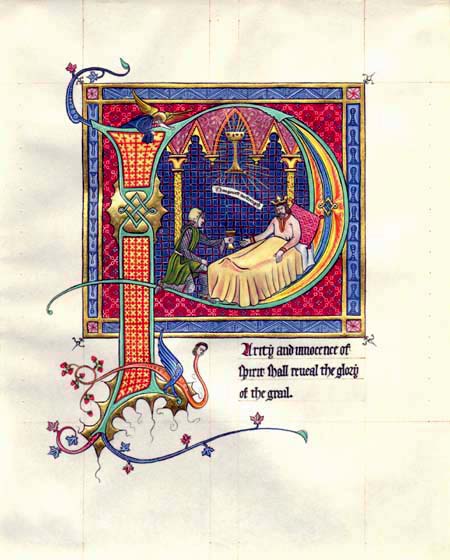 PUrity and innocence of
Spirit Shall reveal the glory
of the grail.